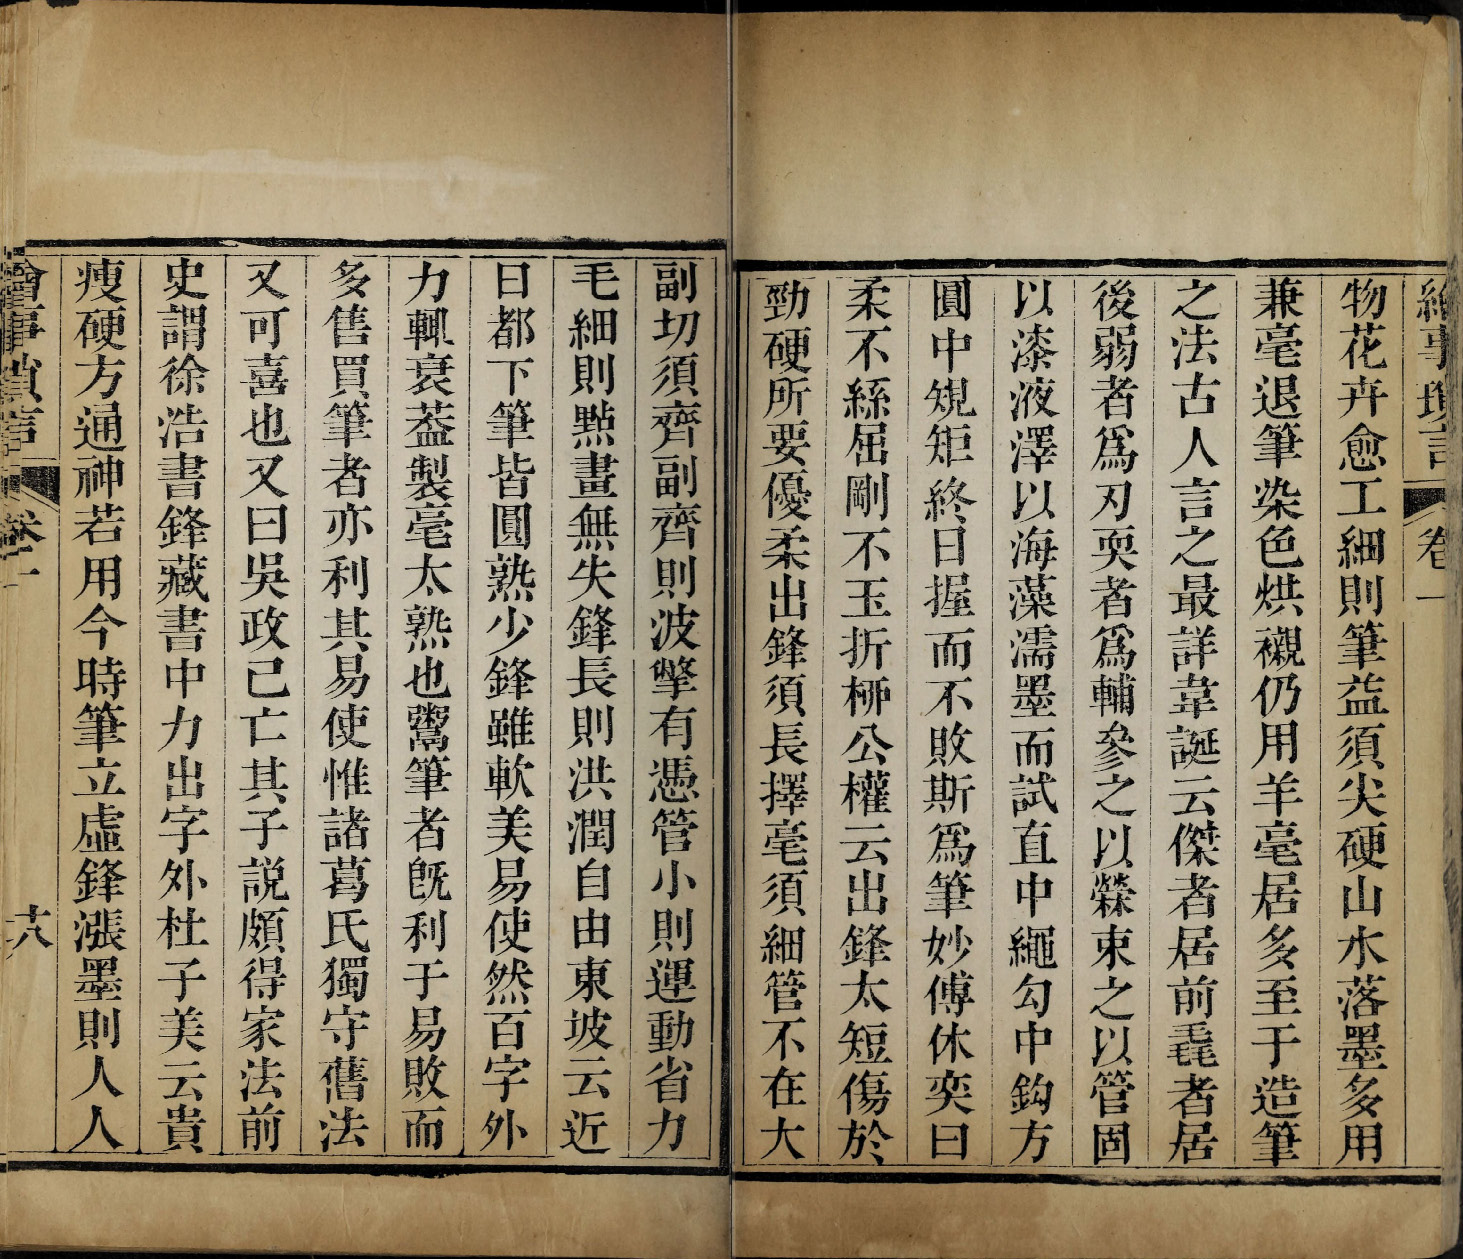 繪事瑣言 卷一
物花卉愈工細則筆益須尖硬山水落墨多用
兼毫退筆染色烘襯仍用羊毫居多至于造筆
之法古人言之最詳韋誕云傑者居前毳者居
後弱者爲刃耎者爲輔參之以檾束之以管固
以漆液澤以海藻濡墨而試直中繩勾中鈎方
圓中規矩終日握而不敗斯爲筆妙傅休奕曰
柔不絲屈剛不玉折栁公權云出鋒太短傷於
勁硬所要優柔出鋒須長擇毫須細管不在大
副切須齊副齊則波撆有憑管小則運動省力
毛細則㸃畫無失鋒長則洪潤自由東坡云近
日都下筆皆圓熟少鋒雖軟美易使然百字外
力輒衰葢製毫太熟也鬻筆者旣利于易敗而
多售買筆者亦利其易使惟諸葛氏獨守舊法
又可喜也又曰吳政已亡其子説頗得家法前
史謂徐浩書鋒藏書中力出字外杜子美云貴
瘦硬方通神若用今時筆立虛鋒漲墨則人人
繪事瑣言 卷一 十八